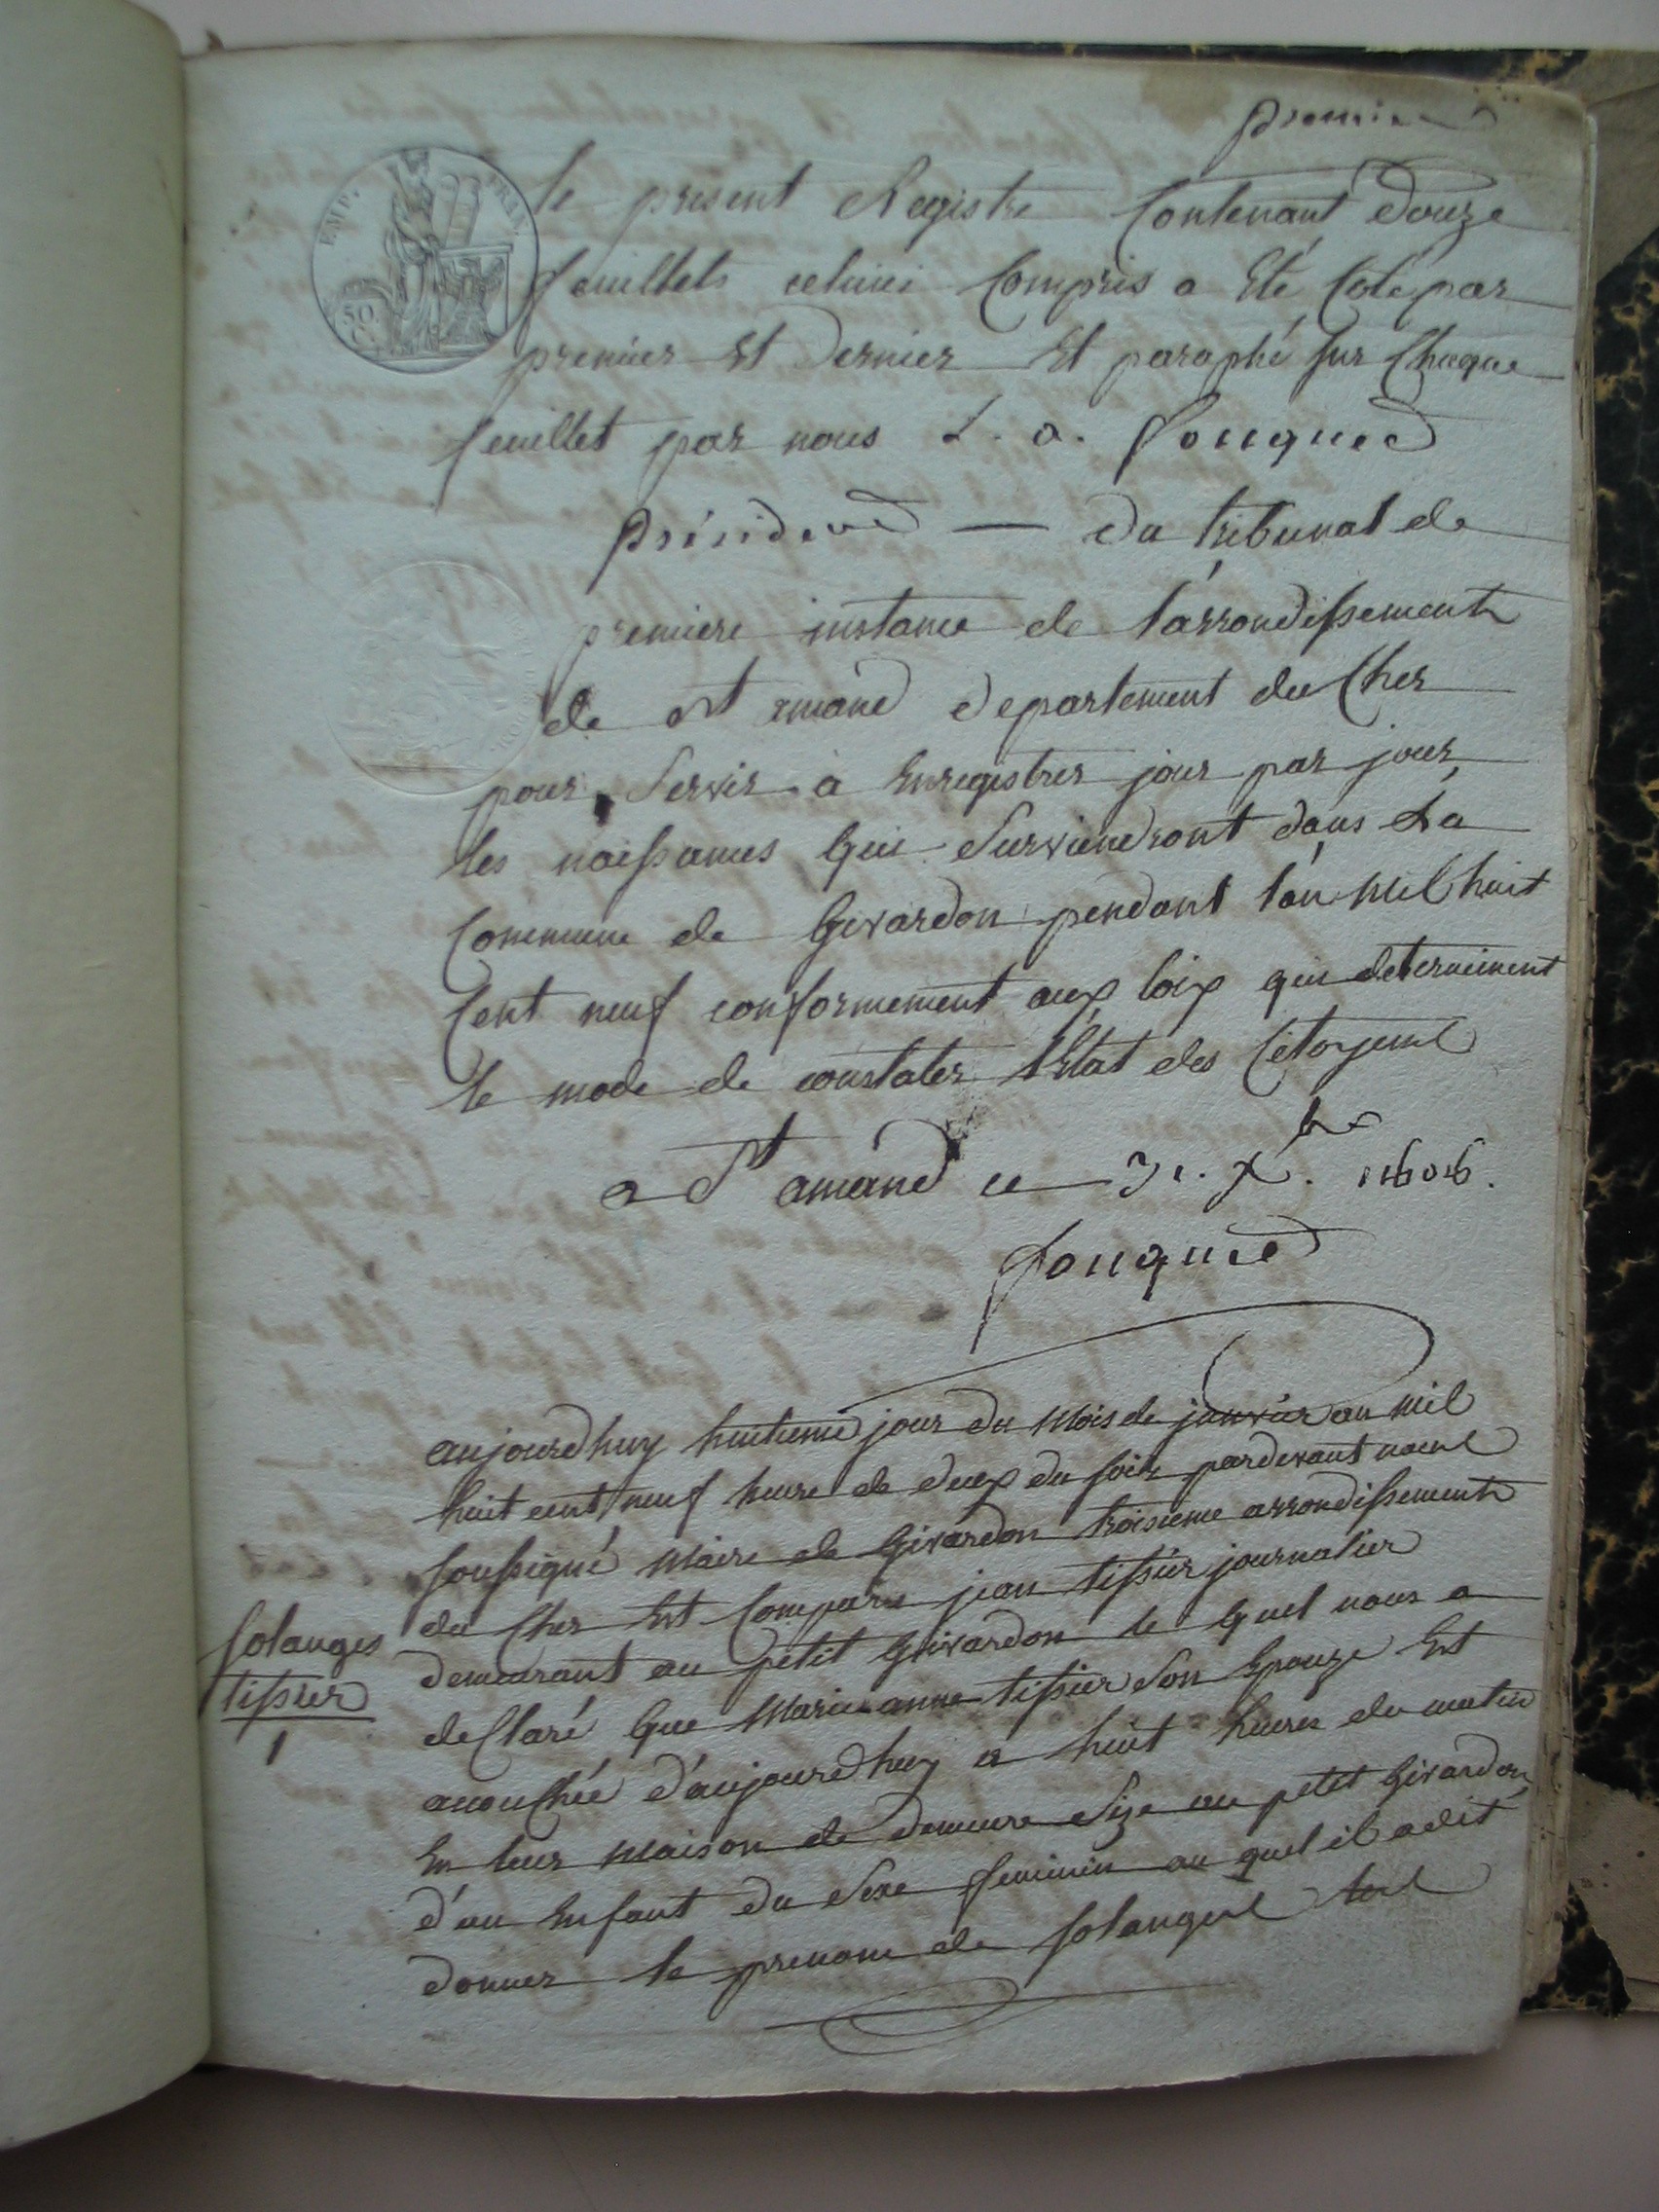 premier
EMP. FRAN.
50 C.
le present Registre Contenant douze
feuillets celuici Compris a Eté Coté par
premier Et Dernier Et paraphé sur Chaque
feuillet par nous L. a. fouquet
president — du tribunal de
premiere instance de l'arrondissement
de St amand departement du Cher
pour servir à Enregistrer jour par jour
les naissances Qui Surviendront dans La
Commune de Givardon pendant l'an Mil huit
Cent neuf conformement aux loix qui determinent
le mode de constater l'Etat des Citoyens
a St amand ce 31. Xbre. 1808.
fouquet
aujourdhuy huitieme jour du Mois de janvier an mil
huit cent neuf heure de deux du soir pardevant nous
soussigné Maire de Givardon troisieme arrondissement
du Cher Est Comparu jean tissier journalier
demeurant au petit Givardon le Quel nous a
deClaré Que Marie anne tissier Son Epouze Est
accouChée d'aujourdhuy a huit heures du matin
En leur Maison de demeure Size au petit Givardon
d'un Enfant du Sexe feminin au quel il a dit
donner le prenom de solanges
solanges
tissier
1